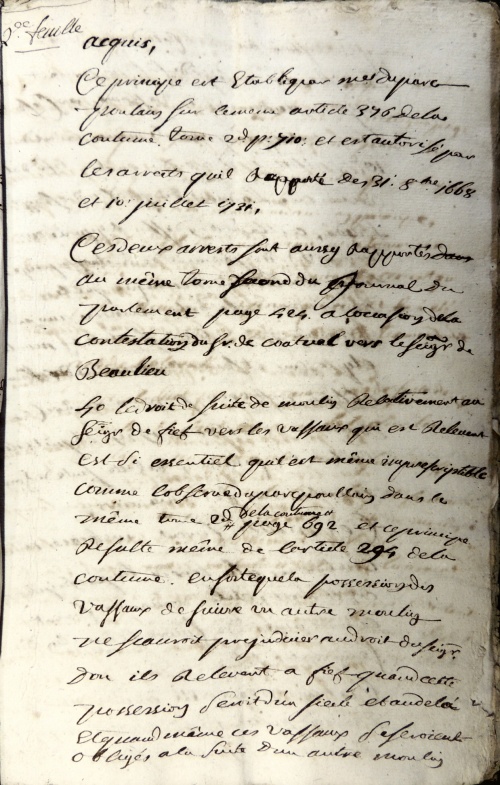 2de feuille
acquis,
Ce principe est Etabli par me. duparc
poulain sur le meme article 376 de la
coutume. tome 2d p: 710: et est autorisé par
les arrests quil Rapporte des 31. 8bre 1668
et 10: juillet 1731,
Ces deux arrests sont aussy Rapportés dans
au même tome second du journal du
parlement page 424 a loccasion de la
contestation du Sr. de coatuel vers le seigr de
Beaulieu
4o le droit de suite de moulin Relativement au
seigr de fief vers les vassaux qui est Relevent
est si essentiel quil est même imprescriptible
comme lobserve duparc poullain dans le
même tome 2d de la coutume page 692 et ce principe
Resulte même de larticle 294 de la
coutume. en sorte que la possession des
vassaux de suivre un autre moulin
ne scauroit prejudicier au droit du seigr
Don ils Relevent a fief quand cette
possession seroit dun siecle et au dela
Et quand même ces vassaux se seroient
obligés a la suite dun autre moulin